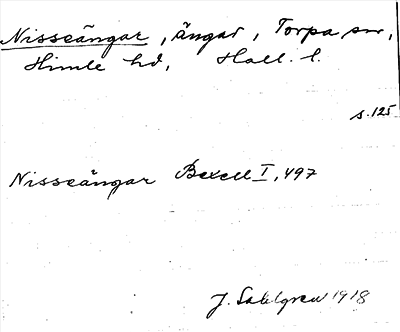 Nisseängar, ängar, Torpa sn,
Himle hd, Hall. l.
s. 125
Nisseängar Bexell I, 497
J. Sahlgren 1918